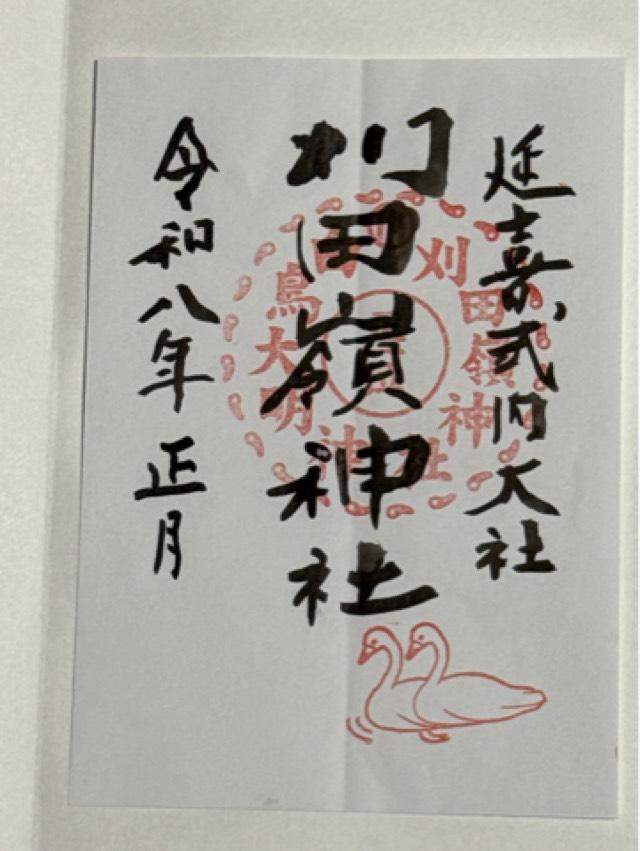 延喜式内大社
刈田嶺神社
令和八年正月
刈田嶺神社
鳥大明神